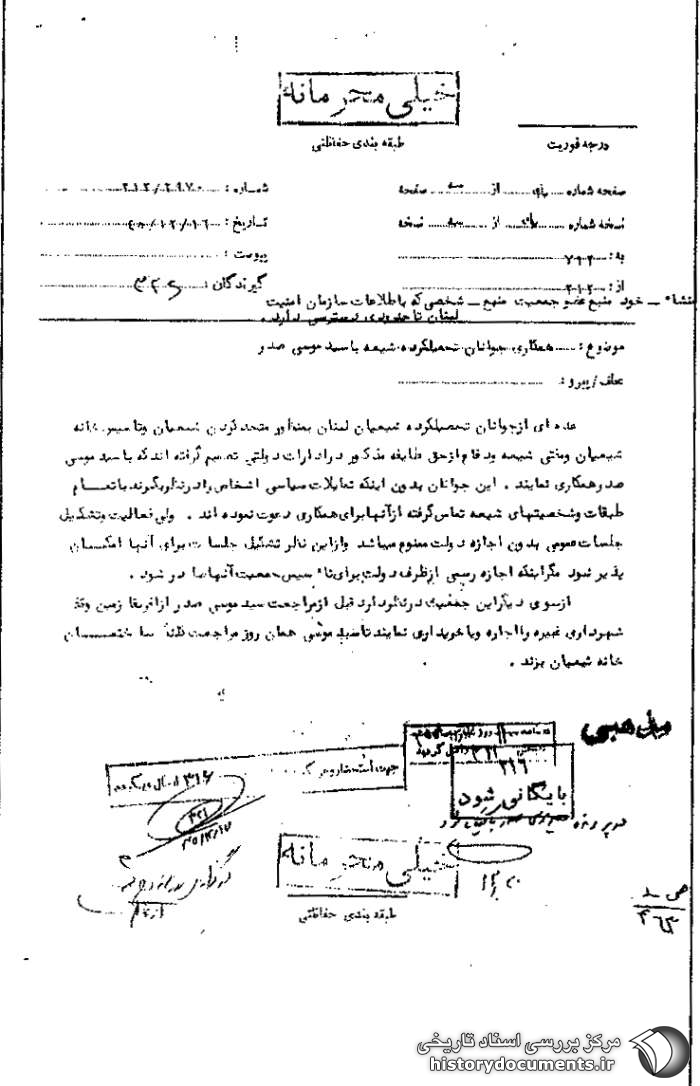 خیلی محرمانه
طبقه بندی حفاظتی
درجه فوریت
صفحه شماره از سه صفحه
شماره : ۲۱۲/۲۹۷۰
نسخه شماره از سه نسخه
تاریخ :
به : ۷۱۲
پیوست :
از : ۲۱۲
گیرندگان : ۳۲۶
منشاء ـ خود منبع عضو جمعیت منبع ـ شخصی که باطلاعات سازمان امنیت
لبنان تا حدودی دسترسی دارد .
موضوع : همکاری جوانان تحصیلکرده شیعه با سید موسی صدر
عطف / پیرو :
عده ای از جوانان تحصیلکرده شیعیان لبنان بمنظور متحد کردن شیعیان و تاسیس خانه
شیعیان و مفتی شیعه و دفاع از حق طایفه مذکور در ادارات دولتی تصمیم گرفته اند که با سید موسی
صدر همکاری نمایند . این جوانان بدون اینکه تمایلات سیاسی اشخاص را در نظر بگیرند با تمام
طبقات و شخصیتهای شیعه تماس گرفته از آنها برای همکاری دعوت نموده اند . ولی فعالیت و تشکیل
جلسات عمومی بدون اجازه دولت ممنوع میباشد و از این نظر تشکیل جلسات برای آنها امکان
پذیر نبود مگر اینکه اجازه رسمی از طرف دولت برای تاسیس جمعیت آنها صادر شود .
از سوی دیگر این جمعیت در نظر دارد قبل از مراجعت سید موسی صدر از افریقا زمین وقف
شهرداری غبیره را اجاره و یا خریداری نمایند تا سید موسی همان روز مراجعت ساختمان
خانه شیعیان بزند .
مذهبی
۳۲۱
۳۱۶
بایگانی شود
در پرونده
۳۱۶
۳۲۱
خیلی محرمانه
طبقه بندی حفاظتی
۴۶۳
مرکز بررسی اسناد تاریخی
historydocuments.ir